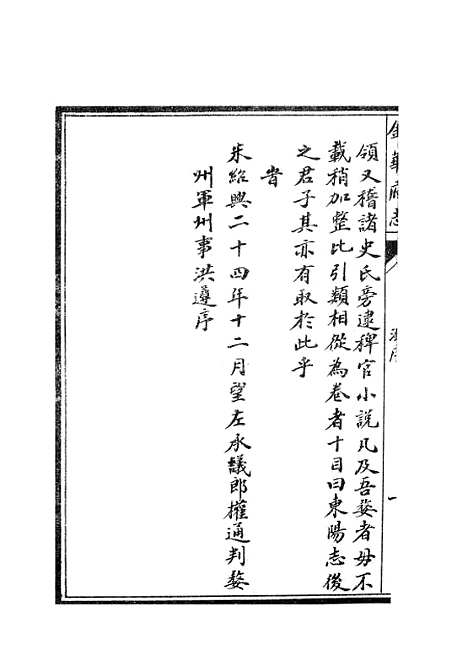 領又稽諸史氏旁逮稗官小說凡及吾婺者毋不
載稍加整比引類相從為卷者十目曰東陽志後
之君子其亦有取於此乎
旹
宋紹興二十四年十二月望左承議郎權通判婺
州軍州事洪遵序